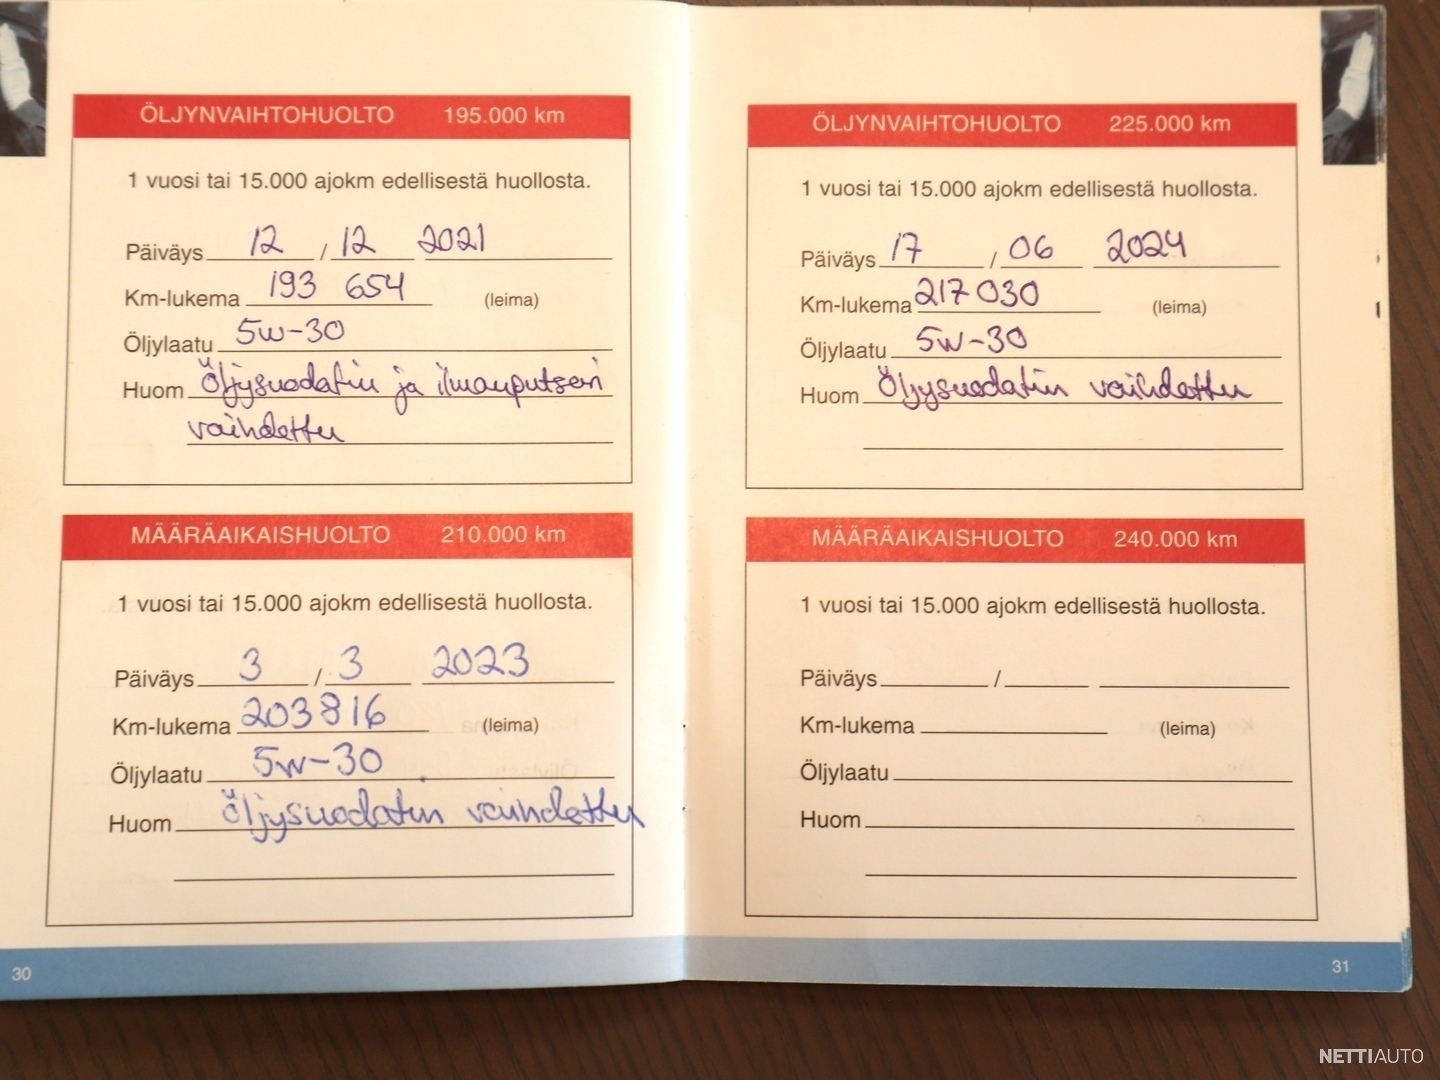 ÖLJYNVAIHTOHUOLTO 195.000 km
1 vuosi tai 15.000 ajokm edellisestä huollosta.
Päiväys 12 / 12 2021
Km-lukema 193 654 (leima)
Öljylaatu 5w-30
Huom Öljysuodatin ja ilmanputsari
vaihdettu
MÄÄRÄAIKAISHUOLTO 210.000 km
1 vuosi tai 15.000 ajokm edellisestä huollosta.
Päiväys 3 / 3 2023
Km-lukema 203816 (leima)
Öljylaatu 5w-30
Huom öljysuodatin vaihdettu
30
ÖLJYNVAIHTOHUOLTO 225.000 km
1 vuosi tai 15.000 ajokm edellisestä huollosta.
Päiväys 17 / 06 2024
Km-lukema 217030 (leima)
Öljylaatu 5w-30
Huom Öljysuodatin vaihdettu
MÄÄRÄAIKAISHUOLTO 240.000 km
1 vuosi tai 15.000 ajokm edellisestä huollosta.
Päiväys /
Km-lukema (leima)
Öljylaatu
Huom
31
NETTIAUTO